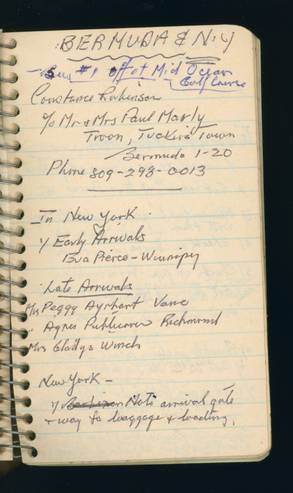 BERMUDA & N.Y
Bus #1 off at Mid Ocean
Golf Course
Constance Parkinson
℅ Mr & Mrs Paul Marly
Troon, Tucker's Town
Bermuda 1-20
Phone 809-293-0013
In New York
Early Arrivals
Eva Pierce - Winnipeg
Late Arrivals
Mrs Peggy Vane
Agnes Richmond
Mrs Gladys Winch
New York -
Note arrival gate
& way to baggage & loading.